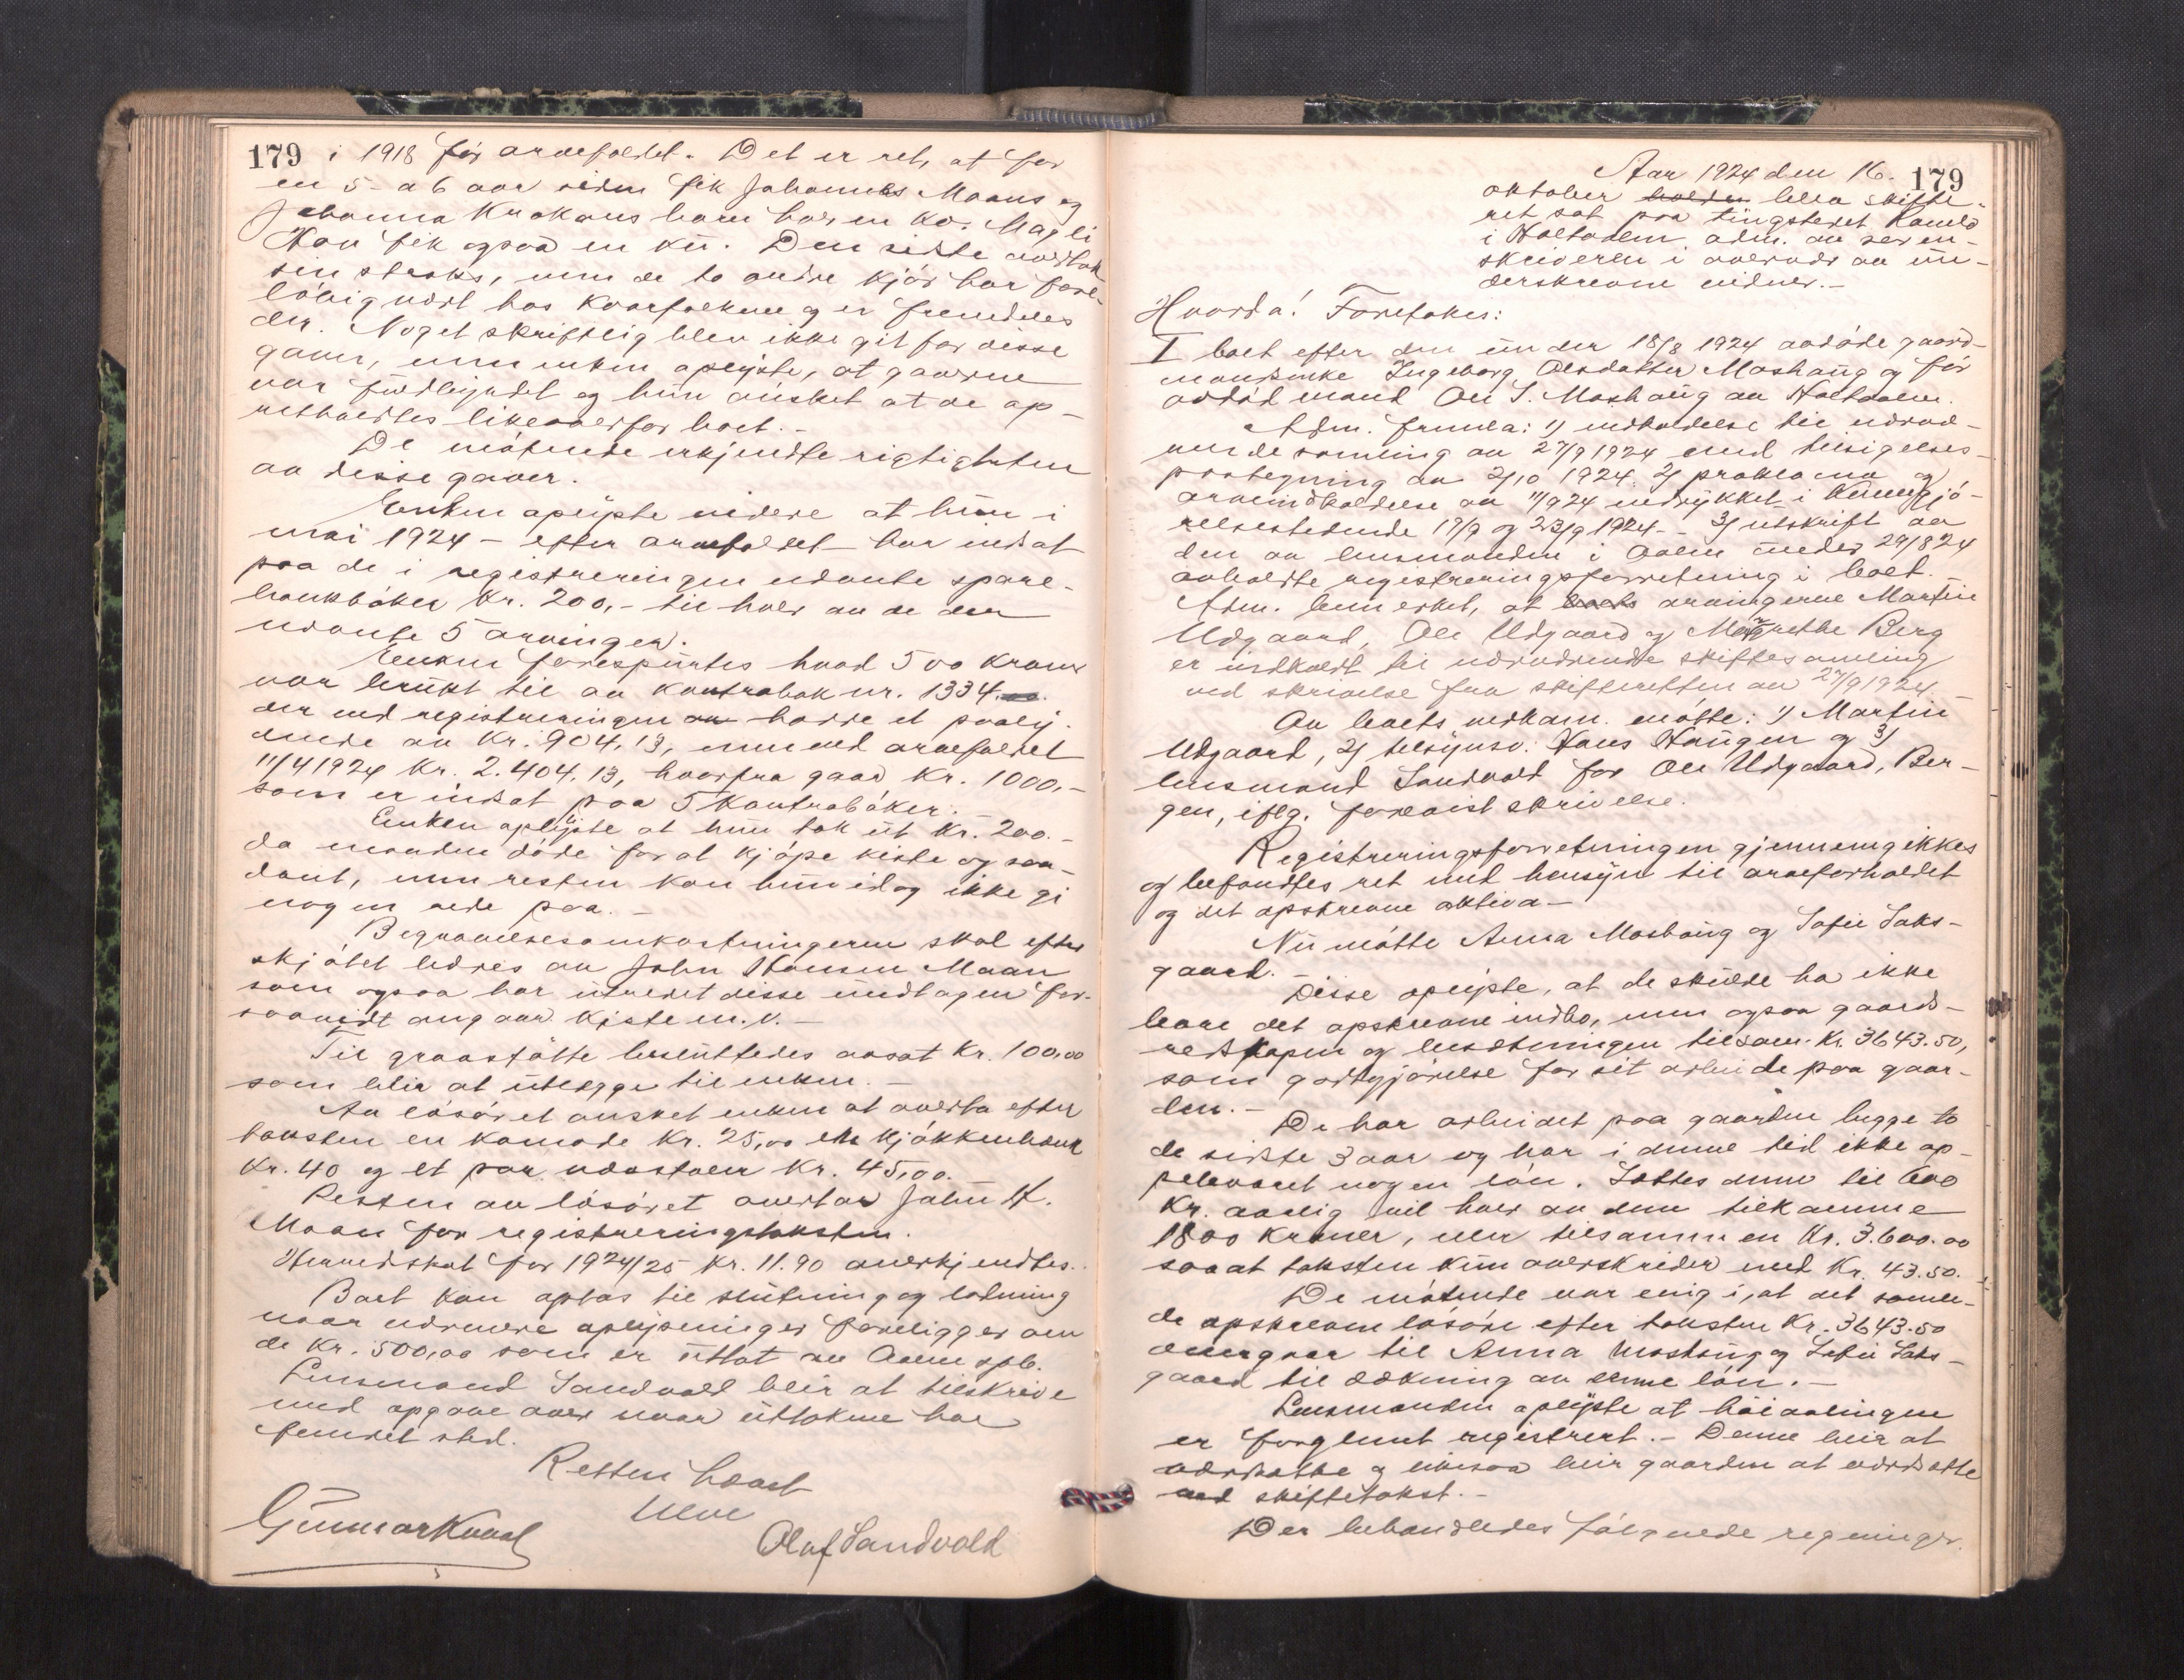 179 i 1918 før arvefaldet. Det er ret, at for
en 5 a 6 aar siden fik Johannes Maans og
Johanna Krokans barn hver en ko. Magli
Hov fik ogsaa en ku. Den siste mottok
sin straks, men de to andre kjør har fore-
løbig vært hos kaarfolkene og er fremdeles
der. Noget skriftlig blev ikke git for disse
gaver, men enken oplyste, at gaverne
var fuldbyrdet og hun ønsket at de op-
retholdtes likeoverfor boet.-
De møtende erkjendte rigtigheten
av disse gaver.
Enken oplyste videre at hun i
mai 1924 - efter arvefaldet - har indsat
paa de i registreringen nævnte spare-
bankbøker Kr. 200,- til hver av de der
nævnte 5 arvinger.
Enken forespurtes hvad 500 kroner
var brukt til av kontrabok nr. 1334
der ved registreringen hadde et paaly-
dende av Kr. 904,13, men ved arvefaldet
11/4 1924 Kr. 2.404.13, hvorfra gaar Kr. 1000,-
som er indsat paa 5 kontrabøker.-
Enken oplyste at hun tok ut Kr. 200.-
da manden døde for at kjøpe kiste og saa-
dant, men resten kan hun idag ikke gi
nogen rede paa.-
Begravelsesomkostningerne skal efter
skjøtet utredes av John Hansen Maan
som ogsaa har utredet disse undtagen for-
saavidt angaar kiste m.v.-
Til gravstøtte besluttedes avsat Kr. 100,00
som blir at utlegge til enken.-
Av løsøret ønsket enken at overta efter
taksten en komode Kr. 25,00 en kjøkkenbenk
Kr. 40 og et par vævstoler Kr. 45,00.-
Resten av løsøret overtar John H.
Maan for registreringstaksten.
Herredskat for 1924/25 Kr. 11.90 anerkjendtes.
Boet kan optas til slutning og lodning
naar nærmere oplysninger foreligger om
de Kr. 500,00 som er uttat av Aalen spb.
Lensmand Sandvold blir at tilskrive
med opgave over naar uttakene har
fundet sted.
Retten hævet
Gunnar Kvaal
Olaf Sandvold
179
Aar 1924 den 16.
oktober holdes blev skifte-
ret sat paa tingstedet
i Holtaalen, adm. av soren-
skriveren i overvær av un-
derskrevne vidner.-
Hvorda! Foretokes:
I boet efter den under 18/8 1924 avdøde gaard-
mandsenke Ingeborg Olsdatter Moshaug og før
avdød mand Ole J. Moshaug av Holtaalen.
Adm. fremla: 1) indkaldelse til nærvæ-
rende samling av 27/9 1924 med tilsigelses-
paategning av 2/10 1924. 2) proklama og
arveindkaldelse av 11/9 24 indrykket i Kundgjø-
relsestidende 17/9 og 23/9 1924.- 3) utskrift av
den av lensmanden i Aalen under 29/8 24
avholdte registreringsforretning i boet.-
Adm. bemerket, at boets arvingerne Martin
Udgaard, Ole Udgaard og Margrethe Berg
er indkaldt til nærværende skiftesamling
ved skrivelse fra skifteretten av 27/9 1924.-
Av boets vedkom. møtte: 1) Martin
Udgaard, 2) tilsynsv. Hans Haugen og 3)
lensmand Sandvold for Ole Udgaard, Ber-
gen, iflg. forevist skrivelse.
Registreringsforretningen gjennemgikkes
og befandtes ret med hensyn til arveforholdet
og det opskrevne aktiva.-
Nu møtte Anna Moshaug og Sofie Saks-
gaard.-
Disse oplyste, at de skulde ha ikke
bare det opskrevne indbo, men ogsaa gaards-
redskapen og besætningen tilsam. Kr. 3643.50,
som godtgjørelse for sit arbeide paa gaar-
den.-
De har arbeidet paa gaarden begge to
de siste 3 aar og har i denne tid ikke op-
pebaaret nogen løn. Sættes denne til 600
Kr. aarlig vil hver av dem tilkomme
1800 kroner, eller tilsammen Kr. 3.600.00
saa at taksten kun overskrider med Kr. 43.50.
De møtende var enig i, at det samle-
de opskrevne løsøre efter taksten Kr. 3643.50
overgaar til Anna Moshaug og Sofie Saks-
gaard til dækning av denne løn.-
Lensmanden oplyste at høiavlingen
er forglemt registrert.- Denne blir at
værdsætte og likesaa blir gaarden at værdsætte
ved skiftetakst.-
Der behandledes følgende regninger.